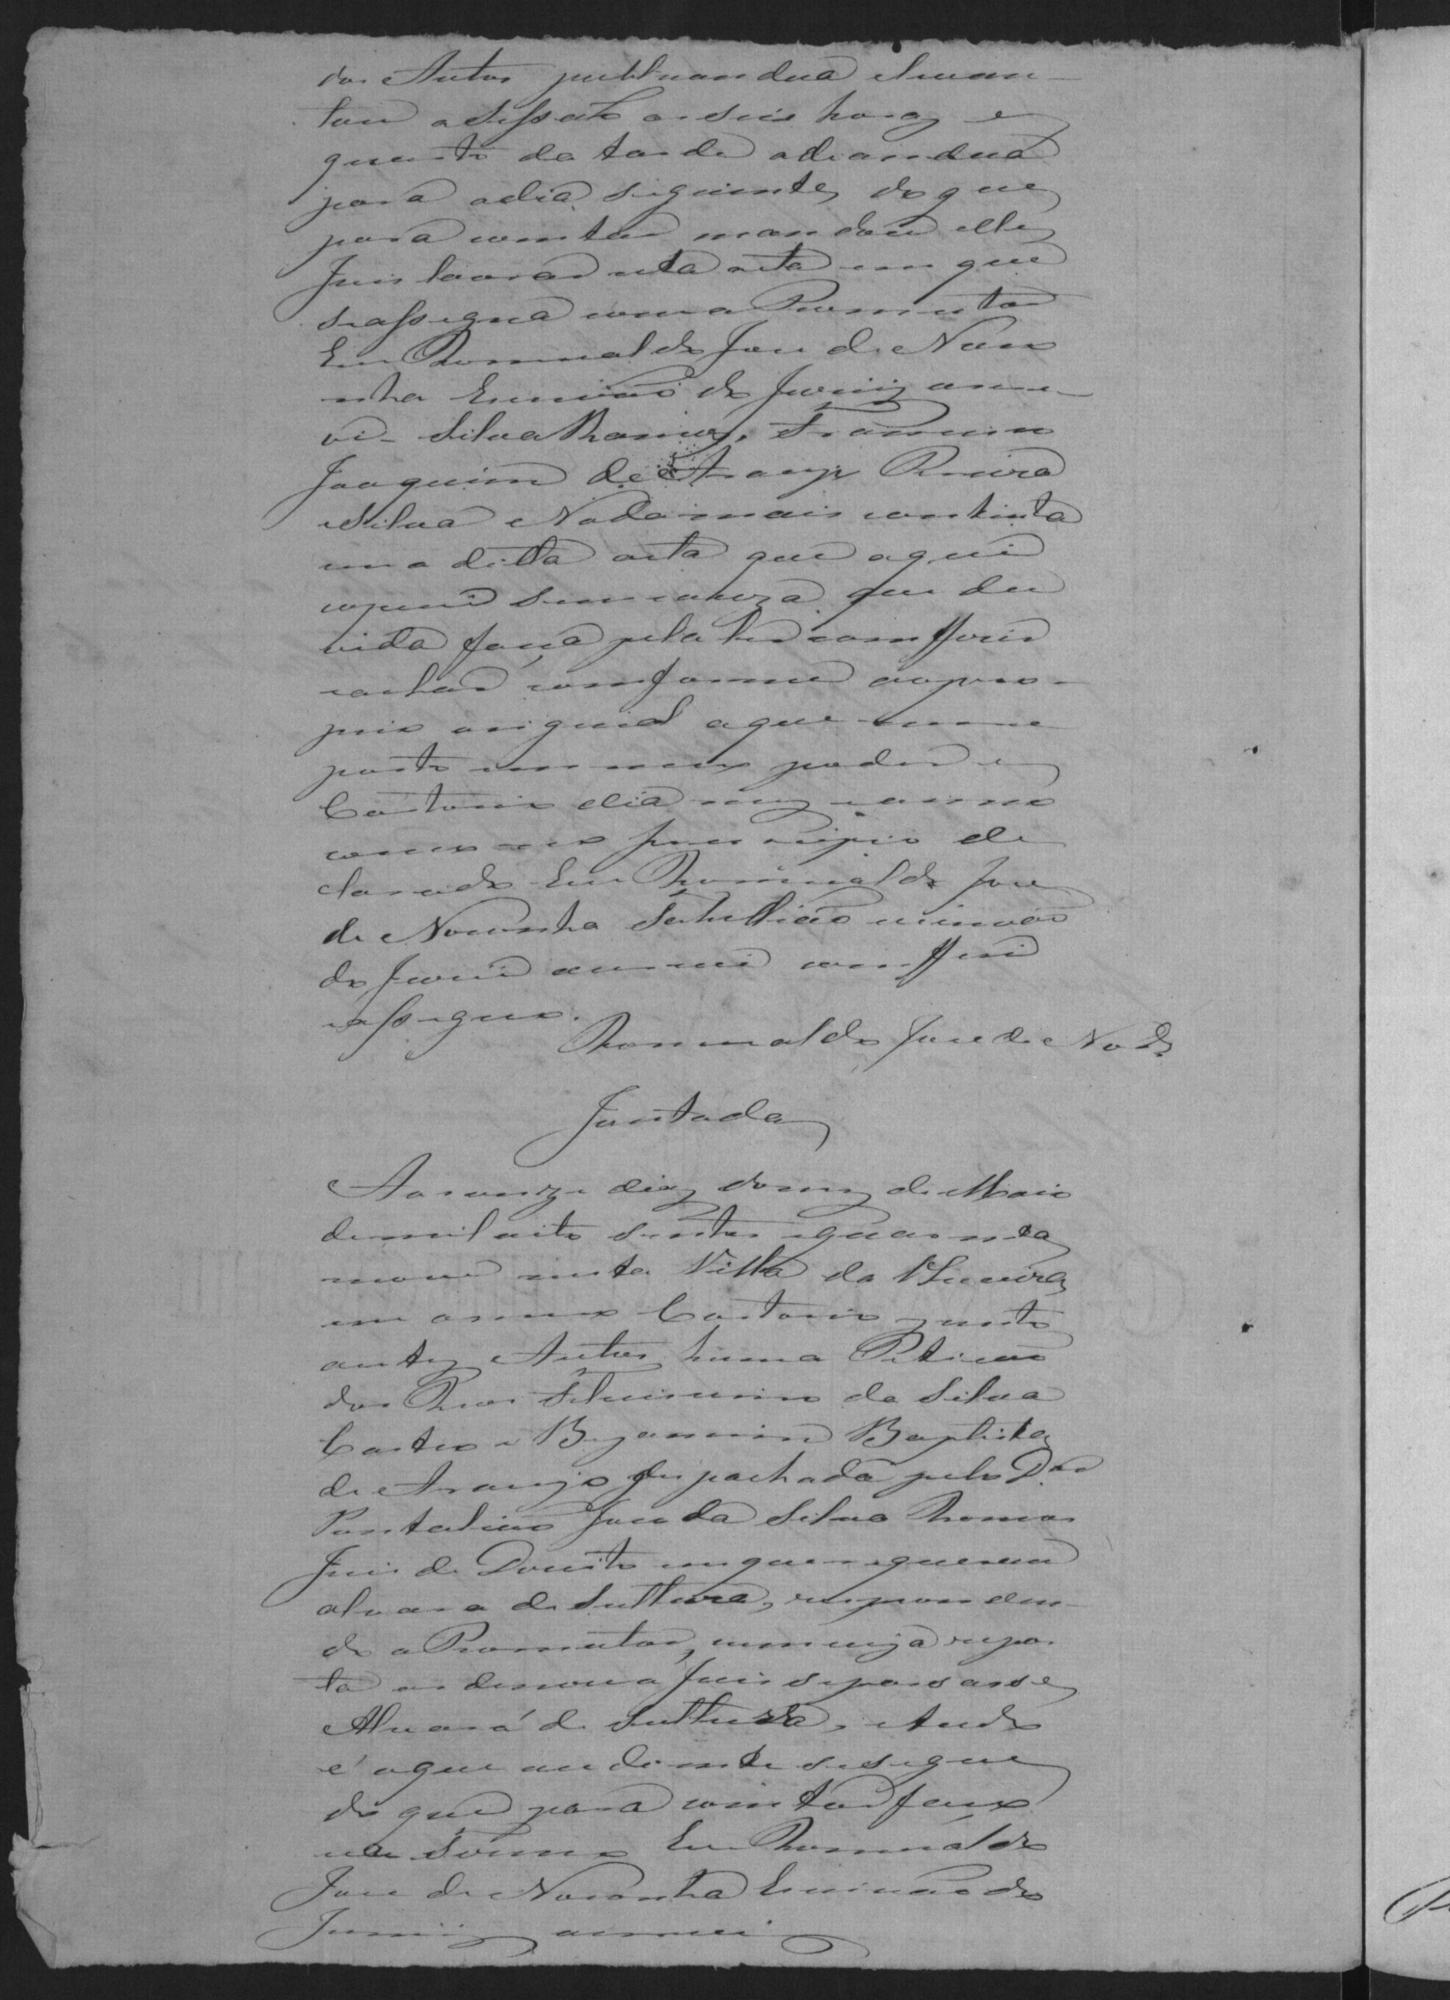 dos Autos publicandua elevan-
tou a Sessaõ as seis horas e
quarto da tarde adiandua
para odia seguinte, do que
para constar mandou elle
Juis lavrar esta acta em que
seassigna com o Promotor
Eu Romualdo Jose de Noro
nha Escrivaõ do Jurii, escre-
vi - Silva Ramos, Francisco
Joaquim de Araujo Pereira
eSilva e Nada mais continha
em a ditta acta que aqui
copiei sem couza que du
vida faça pela ler comfferir
eachar comforme aopro-
prio original aque me re
porto em meu poder e
Cartorio dia mez e anno
como no principio de
clarado Eu Romualdo Jose
de Noronha Tabelliaõ escrivaõ
do Jurii escrevi comfferi
eassigno.
Romualdo Jose de Noª
Juntada
Aos onze dias domez de Maio
demil oito sentos equarenta
nove nesta Villa da
em o meu Cartorio junto
aestes Autos huma Petiçaõ
dos Reos Silvirino da Silva
Castro e Bejamin Baptista
de Araujo despachada pelo Dor
Pantaliaõ Jose da Silva Ramos
Juis de Direito emque requereraõ
alvara de Sulttura, responden-
do o Promutor, em cuja repos
ta ordenou o Juis sepassasse
Alvará de Sulttura, etudo
é oque ao diante sesegue
do que para constar faço
este termo Eu Romualdo
Jose de Noronha Escrivaõ do
Jurii, escrevi